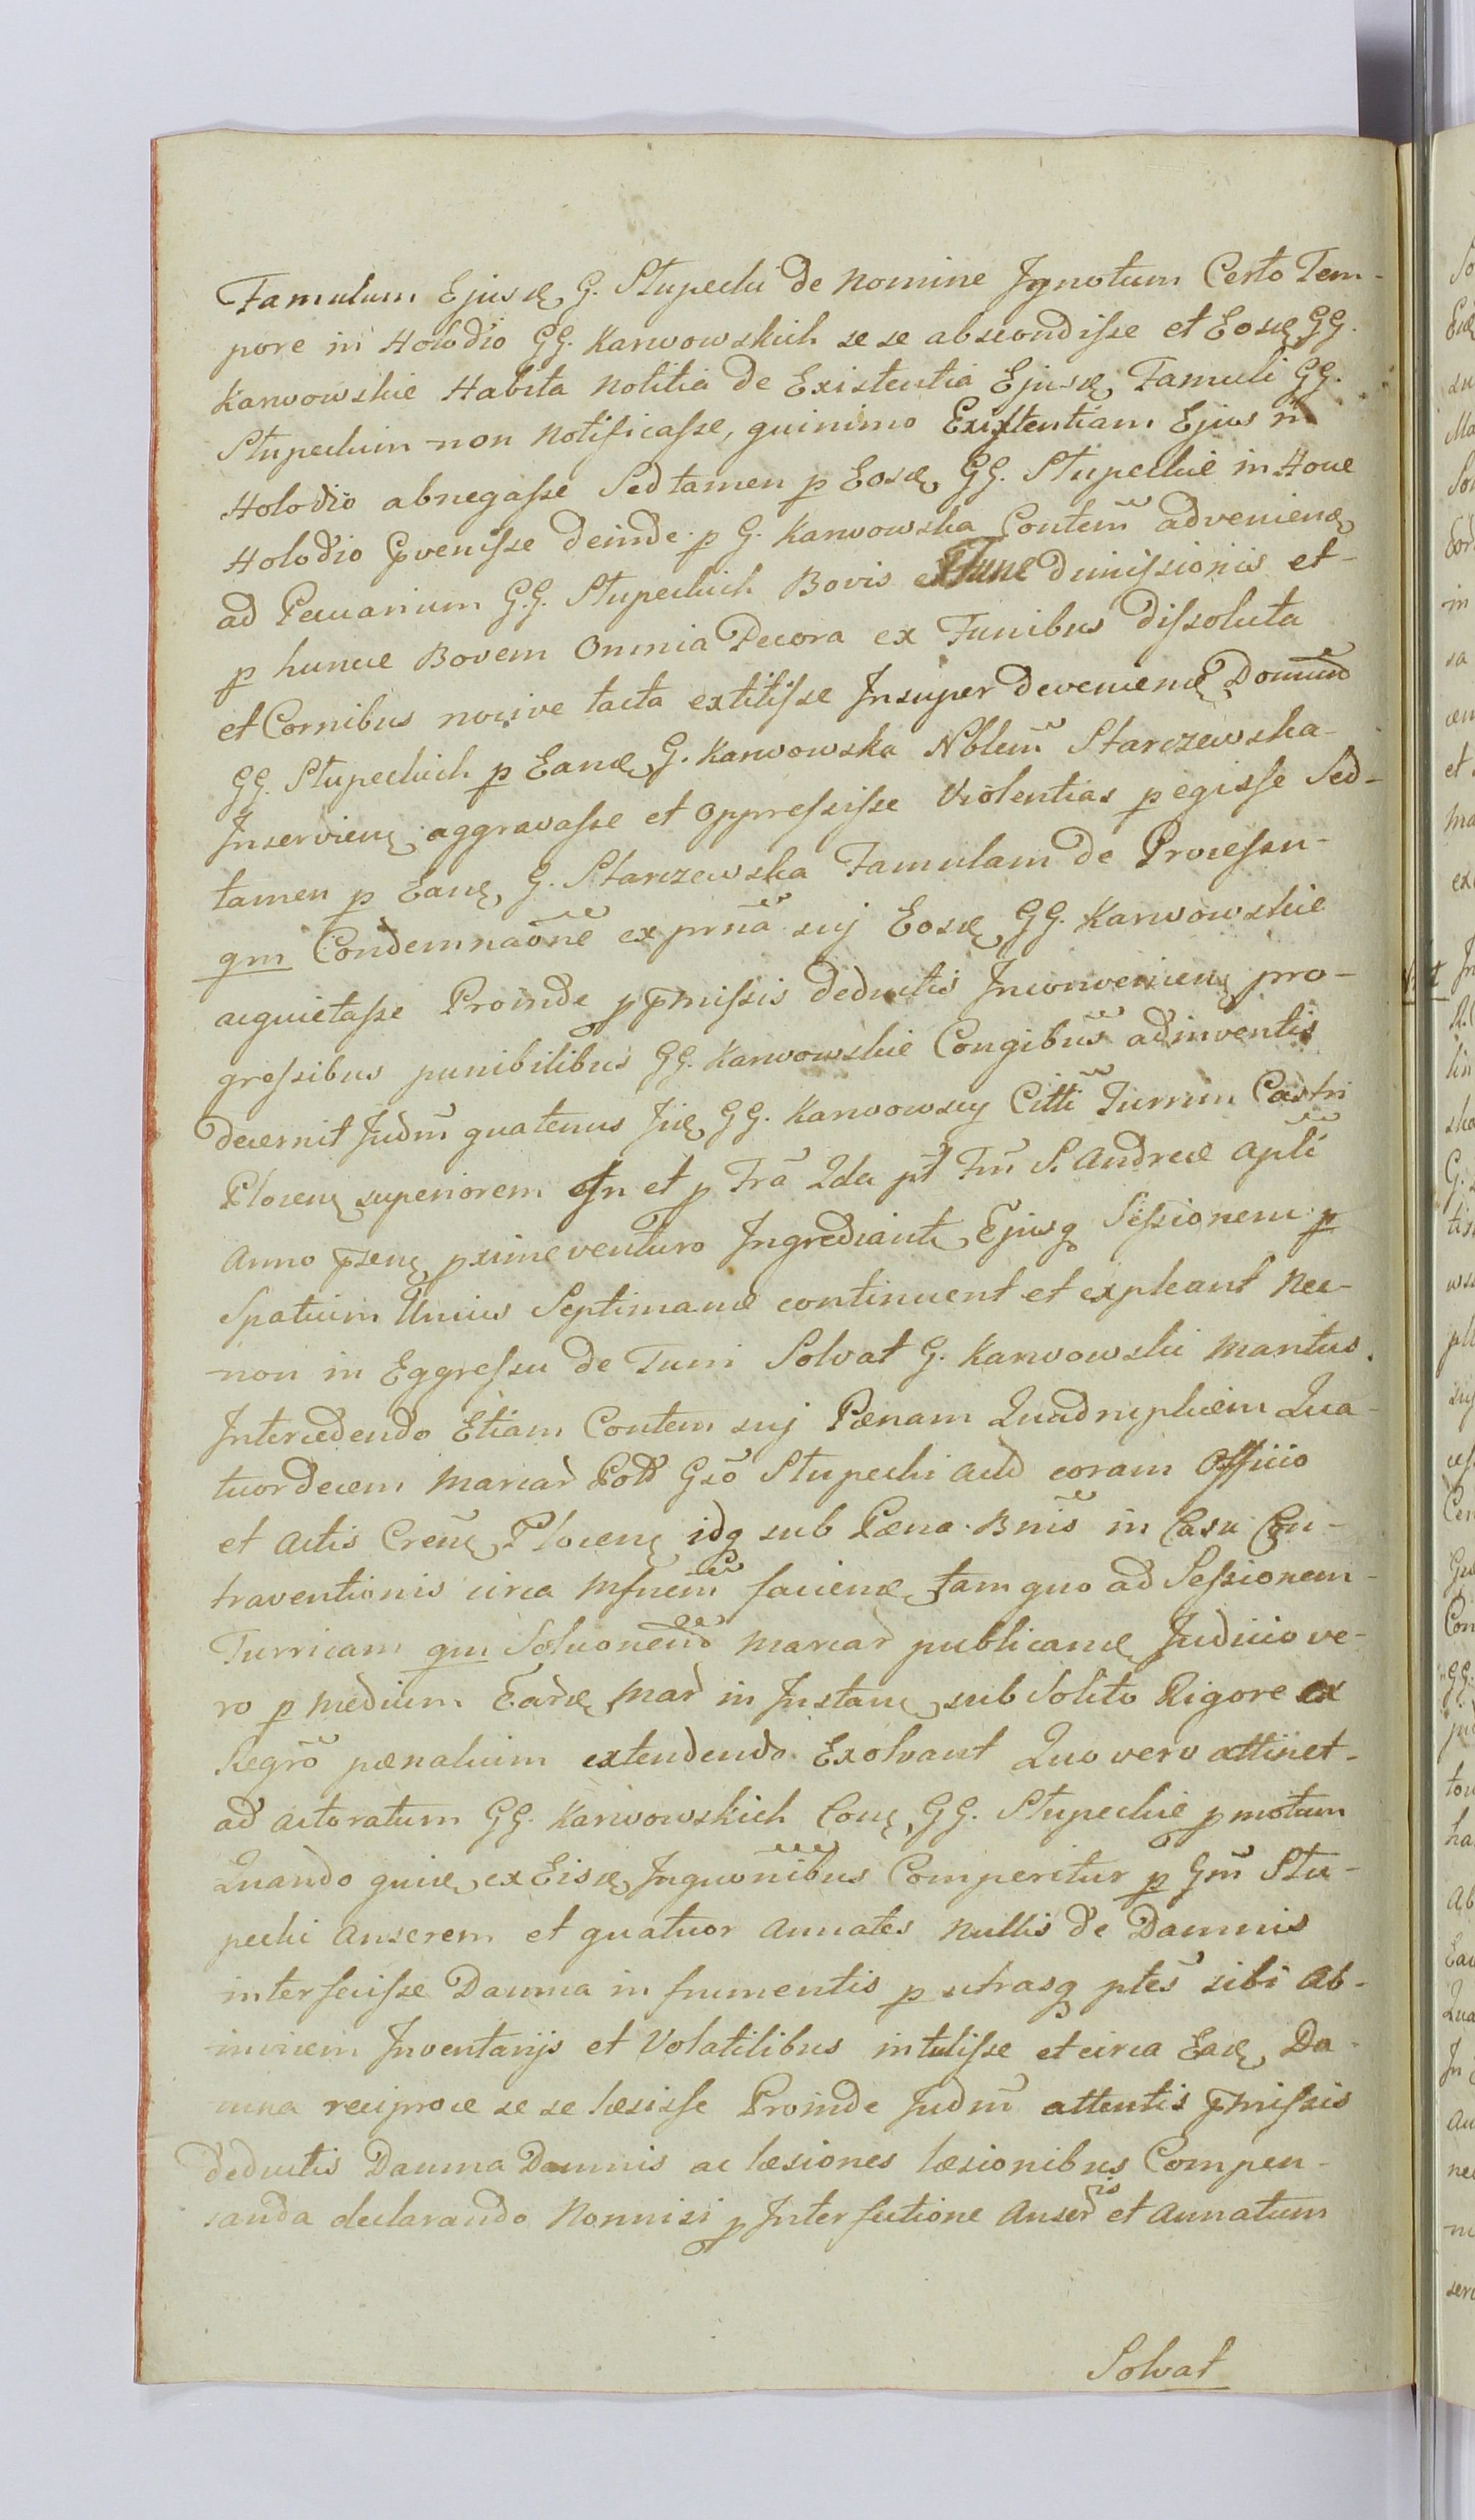 Famulum Ejusd G. Stupecki de nomine Ignotum Certo Tem-
pore in Holodio GG. Karwowskich se se abscondisse et Eosd GG.
Karwowskie Habita notitia de Existentia Ejusd Famuli GG.
Stupeckim non notificasse, quinimo Existentiam Ejus in
Holodio abnegasse Sed tamen p Eosd GG. Stupeckie in Hoce
Holodio Gvenisse deinde p G. Karwowska Contem̃ advenienď
ad Pecuarium G.G. Stupeckich Bovis dimissionis et
p huncce Bovem Omnia Pecora ex Funibus dissoluta
et Cornibus nocive tacta extitisse Insuper devenienď Domum
GG. Stupeckich p Eand G. Karwowska Nblem̃ Starczewska
Inservienť aggravasse et oppressisse Violentias pegisse Sed
tamen p Eand G. Starczewska Famulam de Processu
qm Condemnaõne ex pñna suj Eosd GG. Karwowskie
acquietasse Proinde p p̃missis deductis Inconvenienť pro-
gressibus punibilibus GG. Karwowskie Congibus̃ adinventis
decernit Judm̃ quatenus Iid GG. Karwowscy Citti Turrim Castri
Plocenť superiorem In et p Fra 2da pt̃ Fm̃ S. Andreæ apli
Anno p̃senť pxime venturo Ingrediantť Ejusq Sessionem p
Spatium Unius Septimanæ continuent et expleant nec-
non in Eggressu de Turri Solvat G. Karwowski Maritus
Intercedendo Etiam Contem suj Pænam Quadruplicem Qua-
tuordecem Marcar Pold Gso Stupecki actd coram Officio
et Actis Crens Plocenť idq sub Pæna Bnis̃ in Casu Con-
traventionis circa Mfnem̃ faciend tam quo ad Sessionem
Turricam qm Soluonem̃ Marcar publicand Judicio ve-
ro p medium Eard Mar in Instanť sub Solito Rigore ex
Regr̃o pænalium extendendo Exolvant Quo vero attinet
ad actoratum GG. Karwowskich Conť GG. Stupeckie pmotum
Quando quid ex Eisd Inquonibus̃ Comperitur p Gm̃ Stu-
pecki Anserem et quatuor annates nullis de Damnis
interfecisse Damna in frumentis p utrasq ptes̃ sibi ab
invicem Inventarijs et Volatilibus intulisse et circa Ead Da-
mna reciproce se se læsisse Proinde Judm̃ attentis p̃missis
deductis Damna Damnis ac læsiones læsionibus Compen-
sanda declarando Nonnisi p Interfectione Anseris et Annatum
Solvat